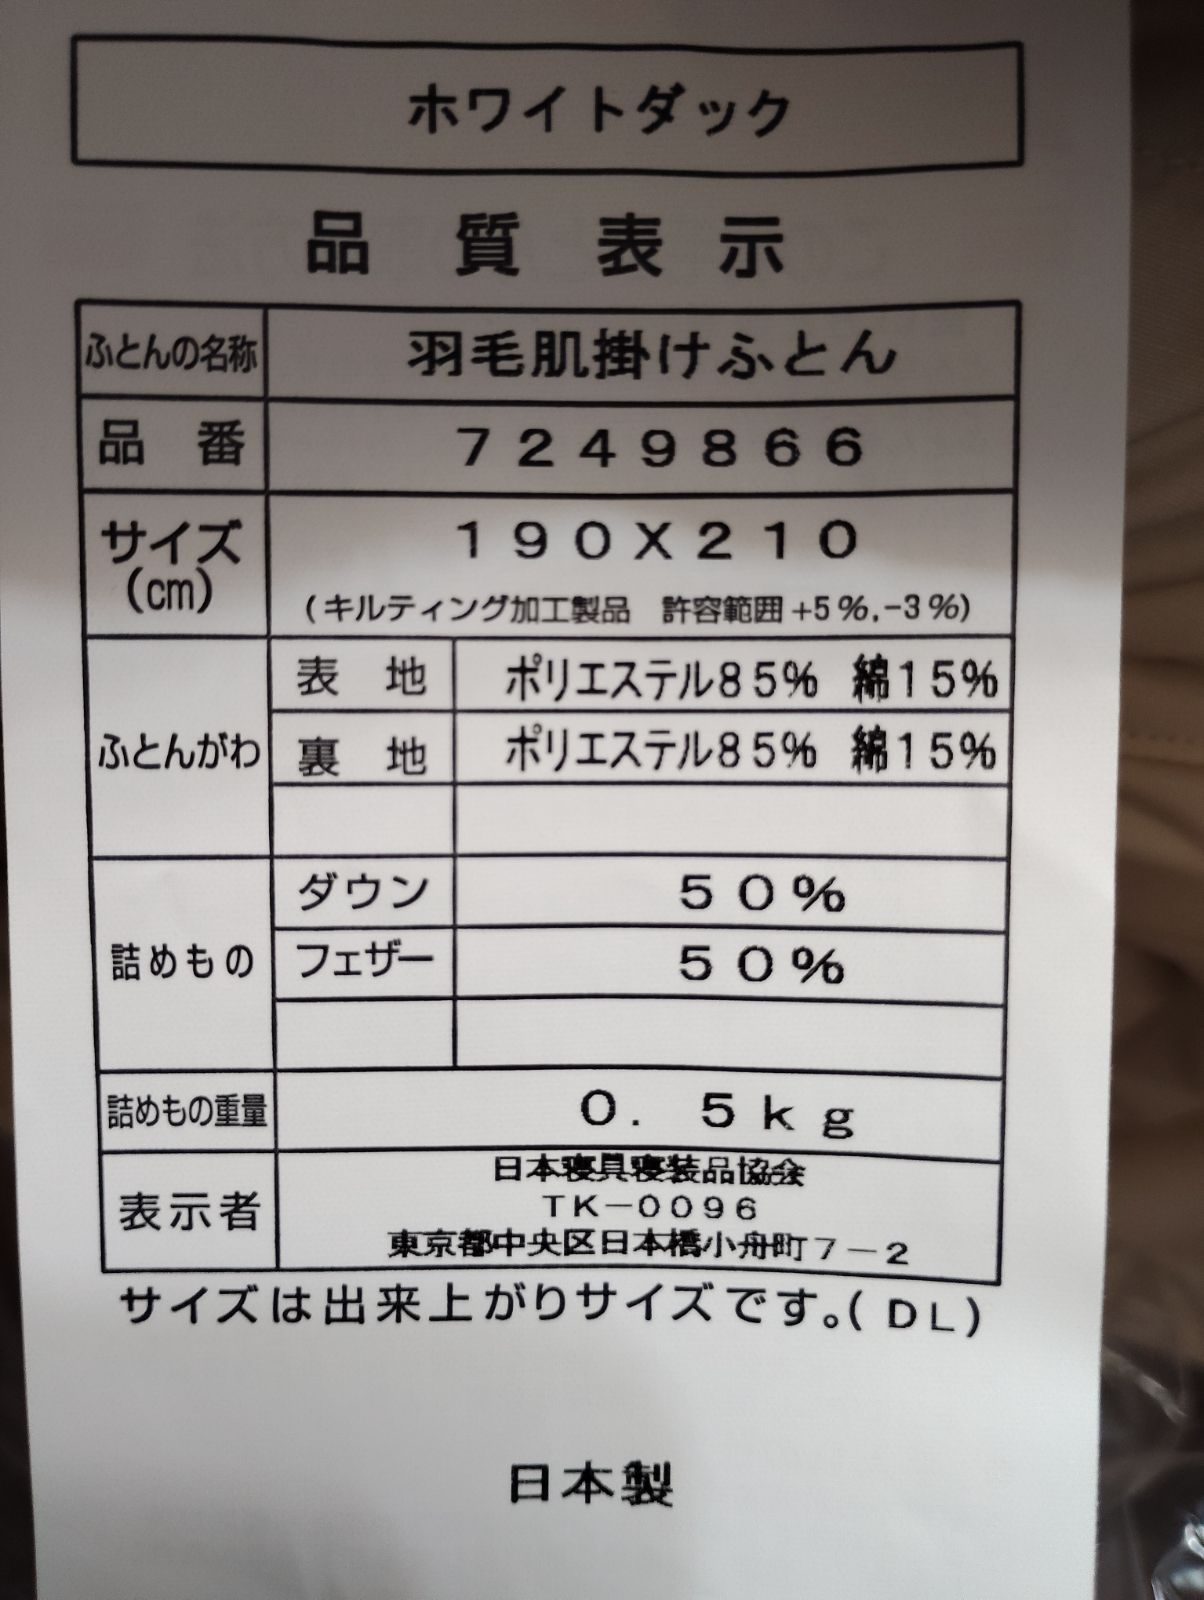 ホワイトダック
品質表示
ふとんの名称 羽毛肌掛けふとん
品番 7249866
サイズ(cm) 190X210
(キルティング加工製品 許容範囲+5%,-3%)
ふとんがわ 表地 ポリエステル85% 綿15%
裏地 ポリエステル85% 綿15%
詰めもの ダウン 50%
フェザー 50%
詰めもの重量 0.5kg
表示者 日本寝具寝装品協会
TK-0096
東京都中央区日本橋小舟町7-2
サイズは出来上がりサイズです。(DL)
日本製